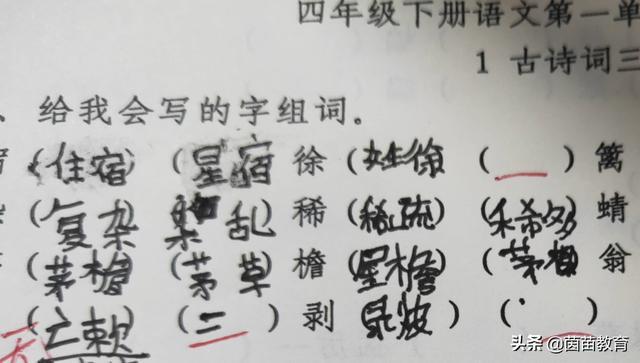 四年级下册语文第一单
1 古诗词三
、给我会写的字组词。
(住宿) (星宿) 徐 (姓徐) ( ) 篱
(复杂) (杂乱) 稀 (稀疏) (稀多) 蜻
(茅檐) (茅草) 檐 (檐) (茅) 翁
(亡赖) (二) 剥 ( ) ( )
头条 @茵苗教育